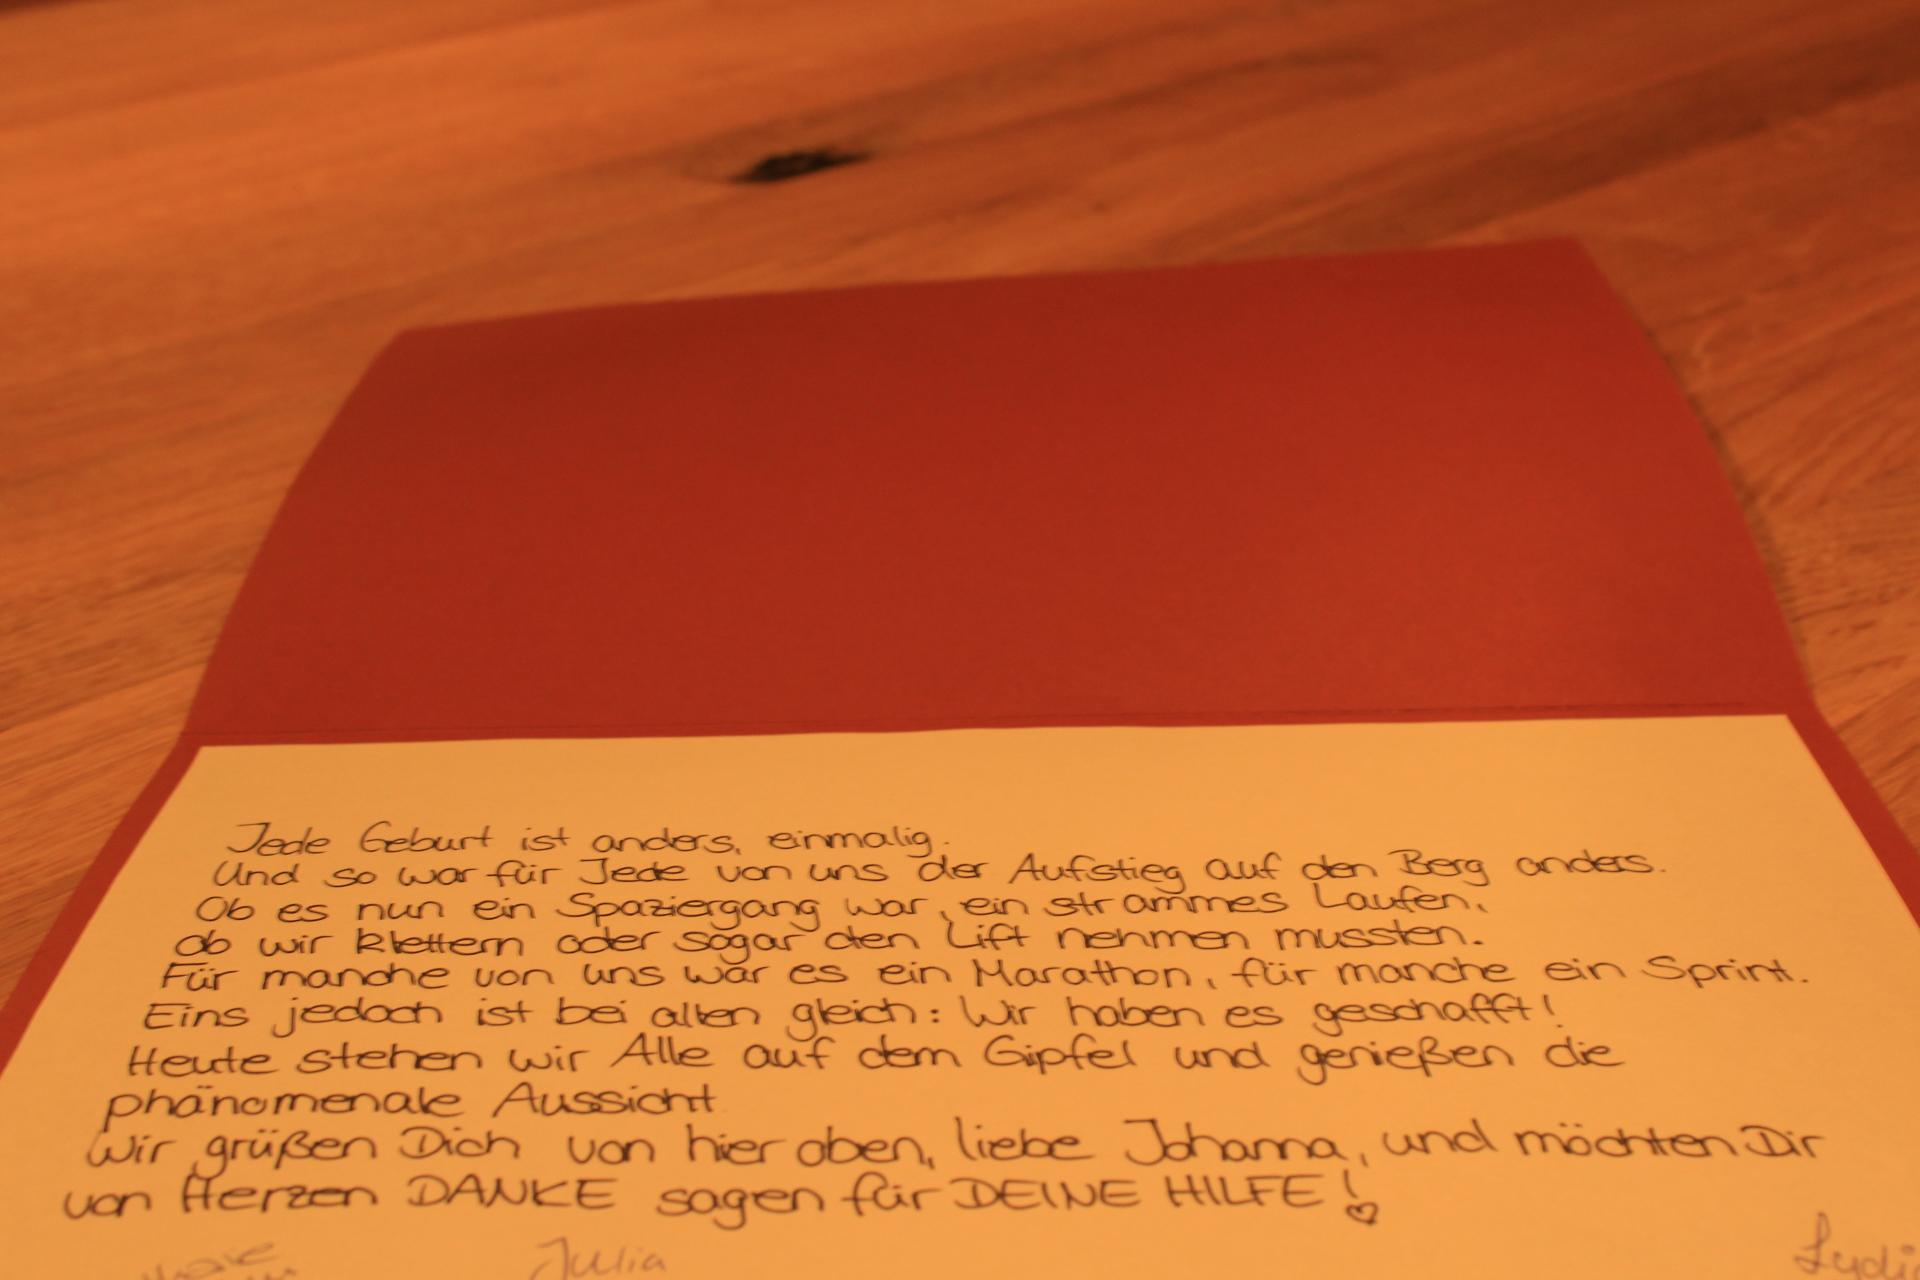 Jede Geburt ist anders, einmalig.
Und so war für Jede von uns der Aufstieg auf den Berg anders.
Ob es nun ein Spaziergang war, ein strammes Laufen,
ob wir klettern oder sogar den Lift nehmen mussten.
Für manche von uns war es ein Marathon, für manche ein Sprint.
Eins jedoch ist bei allen gleich: Wir haben es geschafft!
Heute stehen wir Alle auf dem Gipfel und genießen die
phänomenale Aussicht
Wir grüßen Dich von hier oben, liebe Johanna, und möchten Dir
von Herzen DANKE sagen für DEINE HILFE!
Julia